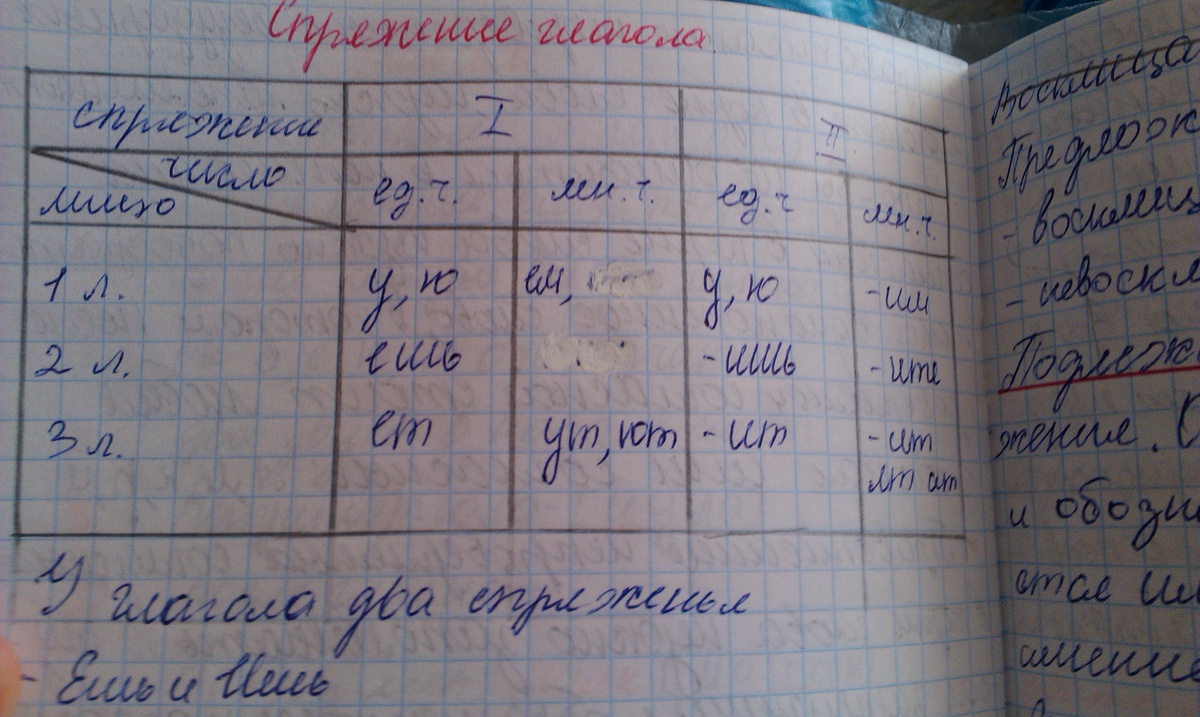 Спряжение глагола
спряжение I II
число
лицо ед.ч. мн.ч. ед.ч мн.ч.
1 л. у, ю ем, у, ю -им
2 л. ешь -ишь -ите
3 л. ет ут, ют -ит -ит
ят ат
У глагола два спряженья
- Ешь и Ишь
Восклица
Предлож
- восклиц
- невоскл
Подлеж
жения. С
и обозн
ется им